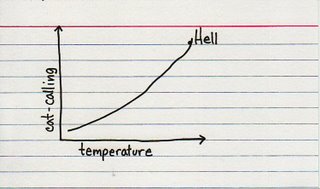 Hell
cat-calling
temperature